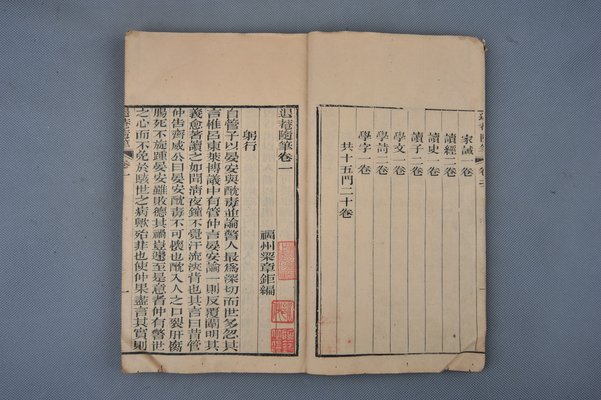 家誡一卷
讀經二卷
讀史二卷
讀子二卷
學文一卷
學詩二卷
學字一卷
共十五門二十卷
退菴隨筆卷一
福州梁章鉅編
躬行
自管子以晏安與酖毒並論警人最為深切而世多忽其
言惟呂東萊博議中有管仲言晏安論一則反覆闡明其
義愈著讀之如聞清夜鐘不覺汗流浹背也其言曰昔管
仲告齊威公曰晏安酖毒不可懷也酖入人之口裂肝腐
腸死不旋踵晏安雖敗德其禍豈遽至是意者仲有警世
之心而不免於
世之病歟殆非也使仲果盡言其實則